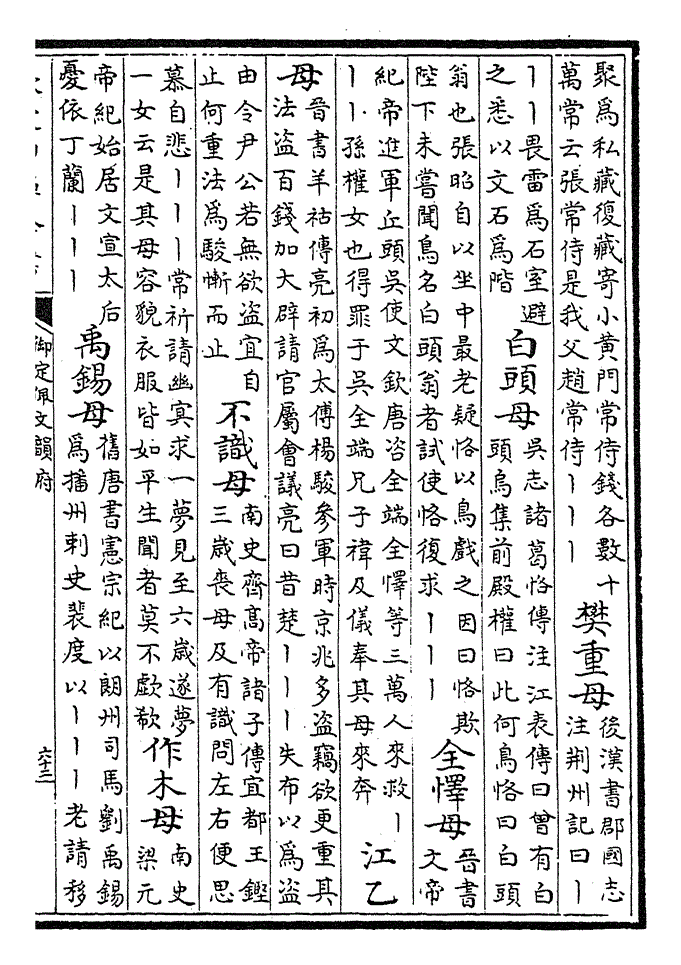 聚為私藏復藏寄小黃門常侍錢各數十
萬常云張常侍是我父趙常侍｜｜｜
樊重母
後漢書郡國志
注荆州記曰｜
｜｜畏雷為石室避
之悉以文石為階
白頭母
吳志諸葛恪傳注江表傳曰曾有白
頭鳥集前殿權曰此何鳥恪曰白頭
翁也張昭自以坐中最老疑恪以鳥戲之因曰恪欺
陛下未嘗聞鳥名白頭翁者試使恪復求｜｜｜
全懌母
晉書
文帝
紀帝進軍丘頭吳使文欽唐咨全端全懌等三萬人來救｜
｜｜孫權女也得罪于吳全端兄子禕及儀奉其母來奔
江乙
母
晉書羊祜傳亮初為太傅楊駿參軍時京兆多盜竊欲更重其
法盜百錢加大辟請官屬會議亮曰昔楚｜｜｜失布以為盜
由令尹公若無欲盜宜自
止何重法為駿慚而止
不識母
南史齊高帝諸子傳宜都王鏗
三歲喪母及有識問左右便思
慕自悲｜｜｜常祈請幽冥求一夢見至六歲遂夢
一女云是其母容貌衣服皆如平生聞者莫不歔欷
作木母
南史
梁元
帝紀始居文宣太后
憂依丁蘭｜｜｜
禹錫母
舊唐書憲宗紀以朗州司馬劉禹錫
為播州刺史裴度以｜｜｜老請移
御定佩文韻府
六十三